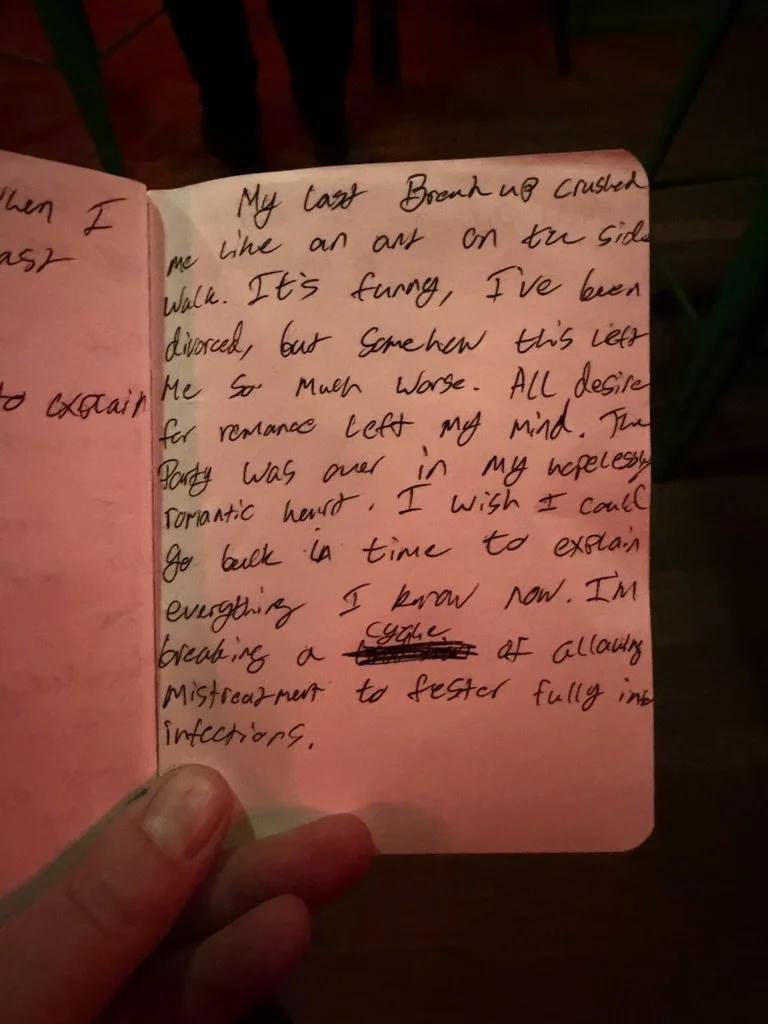 when I
ast
to explain
My last Break up crushed
me like an ant on the side
walk. It's funny, I've been
divorced, but somehow this left
me so much worse. All desire
for romance left my mind. The
Party was over in my hopelessly
romantic heart. I wish I could
go back in time to explain
everything I know now. I'm
cycle
breaking a of allowing
mistreatment to fester fully into
infections.